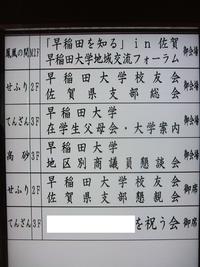 鳳凰の間 M2F 「早稲田を知る」in 佐賀 御会場
早稲田大学地域交流フォーラム
せふり 2F 早稲田大学校友会 御会場
佐賀県支部総会
てんざん 3F 早稲田大学 御会場
在学生父母会・大学案内
高砂 3F 早稲田大学 御会場
地区別商議員懇談会
せふり 2F 早稲田大学校友会 御席
佐賀県支部懇親会
てんざん 3F を祝う会 御席